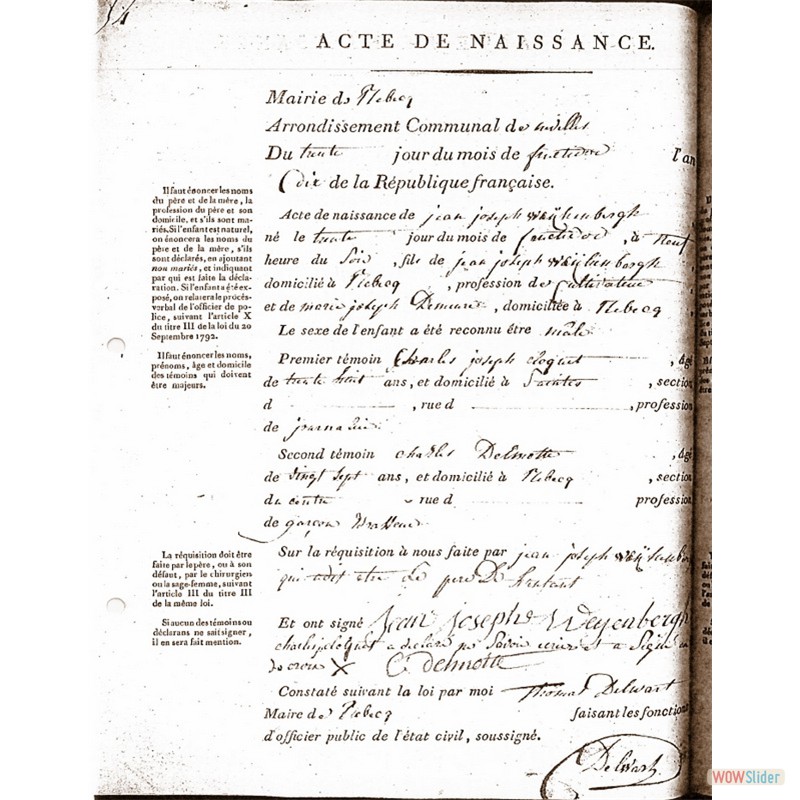 ACTE DE NAISSANCE.
Mairie de Rebecq
Arrondissement Communal de nivelles
Du trente jour du mois de fructidor l'an
dix de la République française.
Il faut énoncer les noms
du père et de la mère, la
profession du père et son
domicile, et s'ils sont ma-
riés. Si l'enfant est naturel,
on énoncera les noms du
père et de la mère, s'ils
sont déclarés, en ajoutant
non mariés, et indiquant
par qui est faite la décla-
ration. Si l'enfant a été ex-
posé, on relatera le procès-
verbal de l'officier de po-
lice, suivant l'article X
du titre III de la loi du 20
Septembre 1792.
Acte de naissance de jean joseph
né le trente jour du mois de fructidor, à neuf
heure du Soir, fils de jean joseph
domicilié à Rebecq, profession de Cultivateur
et de marie joseph Demeure, domiciliée à Rebecq
Le sexe de l'enfant a été reconnu être mâle
Il faut énoncer les noms,
prénoms, âge et domicile
des témoins qui doivent
être majeurs.
Premier témoin Charles joseph cloquet, âgé
de trente huit ans, et domicilié à Saintes, section
d , rue d , profession
de journalier
Second témoin charles Delmotte, âgé
de vingt sept ans, et domicilié à Rebecq, section
du centre rue d profession
de garçon Brasseur
La réquisition doit être
faite par le père, ou à son
défaut, par le chirurgien
ou la sage-femme, suivant
l'article III du titre III
de la même loi.
Sur la réquisition à nous faite par jean joseph
qui a dit etre Le pere De L'enfant
Si aucun des témoins ou
déclarans ne sait signer,
il en sera fait mention.
Et ont signé Jean Josephe Weyenbergh
a declaré ne Savoir ecrire et a Signé
de croix X C Delmotte
Constaté suivant la loi par moi Thomas Delwart
Maire de Rebecq faisant les fonctions
d'officier public de l'état civil, soussigné.
Delwart
WOWSlider